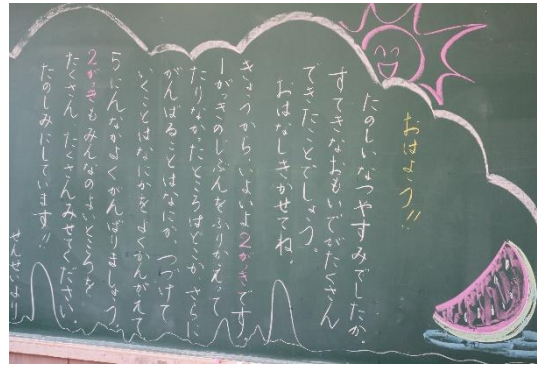 おはよう!!
たのしいなつやすみでしたか。
すてきなおもいでがたくさん
できたことでしょう。
おはなしきかせてね。
きょうから、いよいよ2がっきです。
1がっきのじぶんをふりかえって
たりなかったところはどこか、さらに
がんばることはなにか、つづけて
いくことはなにかをよくかんがえて
みんななかよくがんばりましょう。
2がっきもみんなのよいところを
たくさん、たくさんみせてください。
たのしみにしています!!
せんせいより